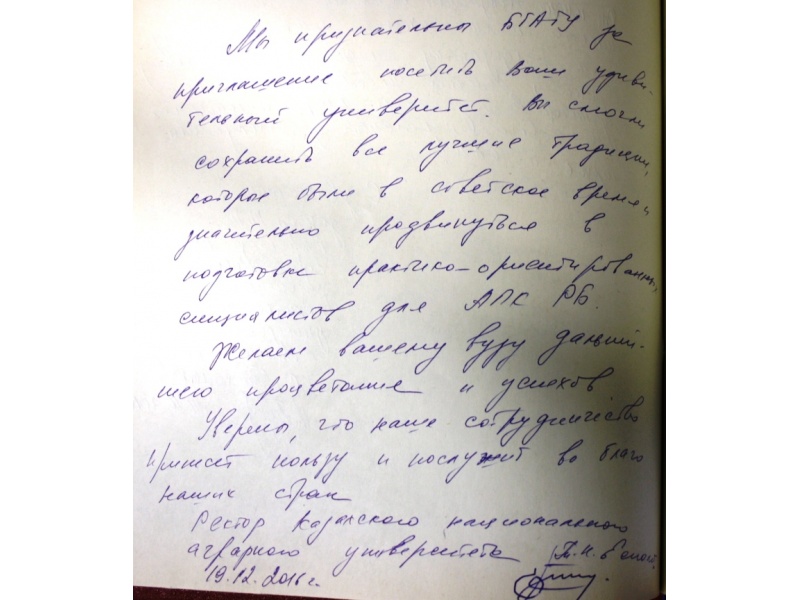 Мы признательны БГАТУ за
приглашение посетить Ваш удиви-
тельный университет. Вы смогли
сохранить все лучшие традиции,
которые были в советское время и
значительно продвинуться в
подготовке практико-ориентированных
специалистов для АПК РБ.
Желаем вашему вузу дальней-
шего процветание и успехов
Уверены, что наше сотрудничество
принесет пользу и послужит во благо
наших стран
Ректор Казахского национального
аграрного университета
19.12.2016 г.